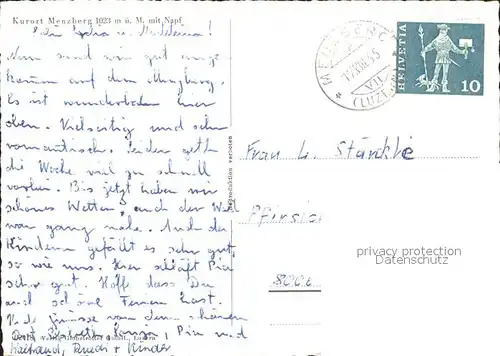 Kurort Menzberg 1023 m ü. M. mit Napf
Nun sind wir gut ange
kommen auf dem Menzberg.
Es ist wunderbar hier
oben. Vielseitig und sehr
romantisch. Leider geht
die Woche viel zu schnell
vorbei. Bis jetzt haben wir
schönes Wetter, auch der Wald
war ganz nahe. Auch den
Kindern gefällt es sehr gut,
so wie uns. Hier schläft Pia
sehr gut. Hoffe dass Du
auch schöne Ferien hast.
Viele Grüsse von dem schönen
Pia und
Kinder
Reproduktion verboten
MENZBERG
(LUZERN)
HELVETIA
10
Frau L. Stärkle
Pfirsic
8006
privacy protection
Datenschutz